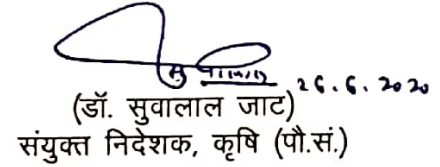 26.6.2020
(डॉ. सुवालाल जाट)
संयुक्त निदेशक, कृषि (पौ.सं.)